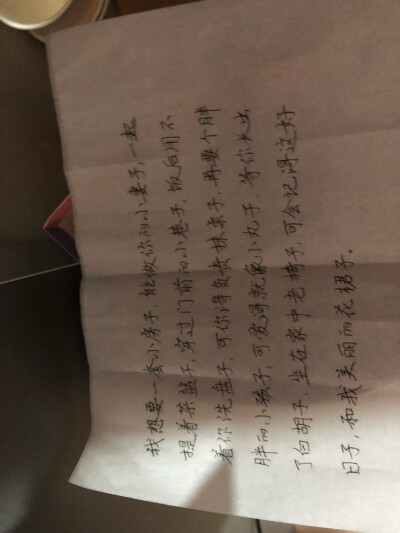 我想要一套小房子,能做你的小妻子,一起
提着菜蓝子,穿过门前的小巷子,饭后用不
着你洗盘子,可你得负责抹桌子,再要个胖
胖的小孩子,可爱得就象小丸子,等你长出
了白胡子,坐在家中老椅子,可会记得这好
日子,和我美丽的花裙子。